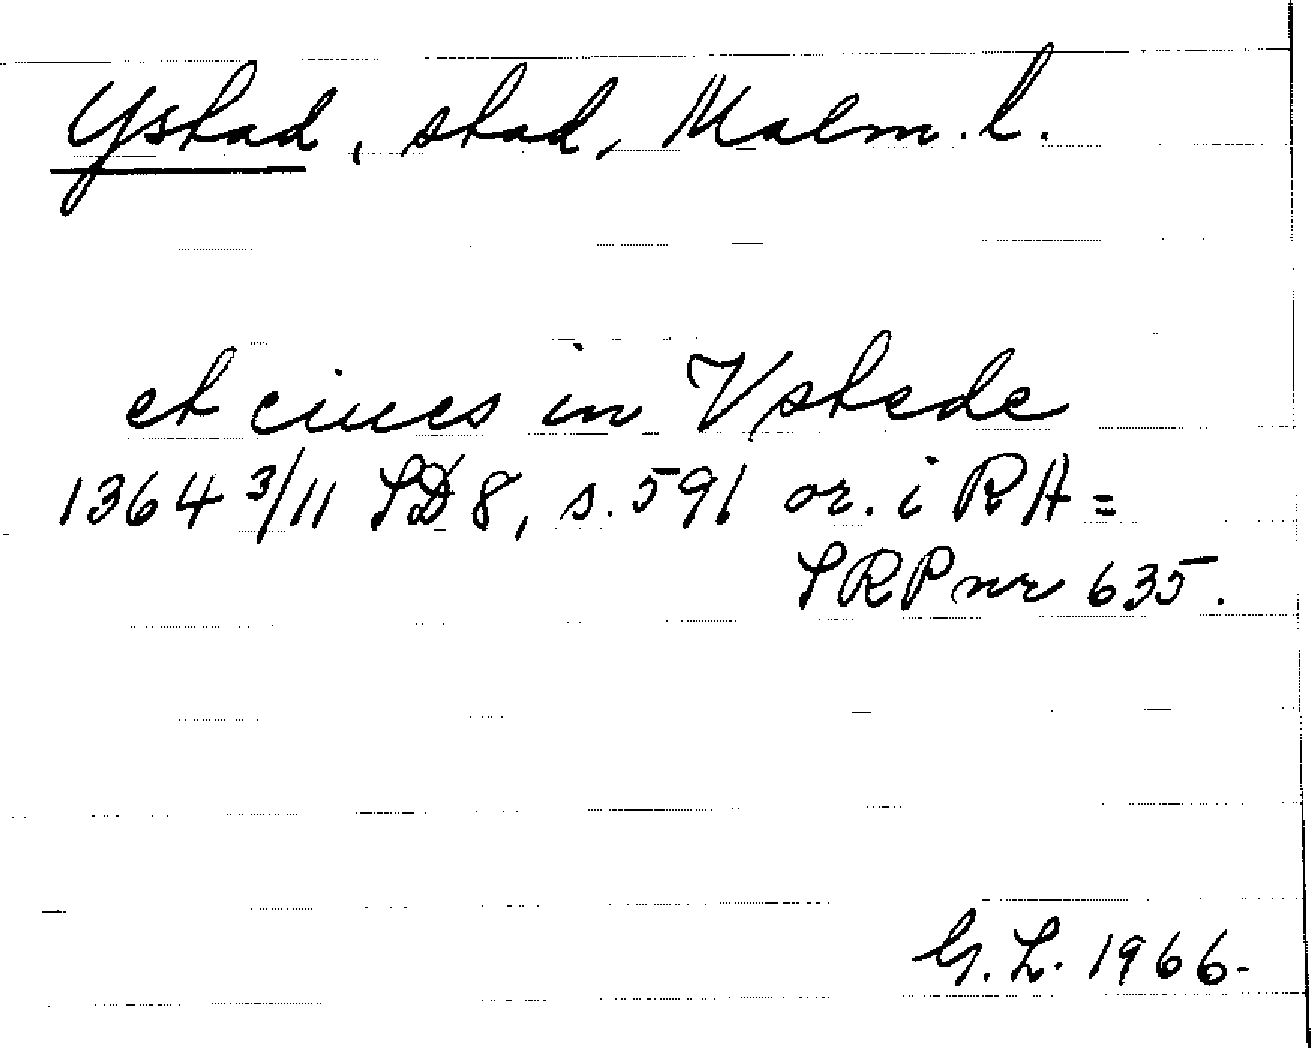 Ystad, stad, Malm. l.
et ciues in Vstede
1364 3/11 SD 8, s. 591 or. i RA =
SRP nr 635.
G. L. 1966.